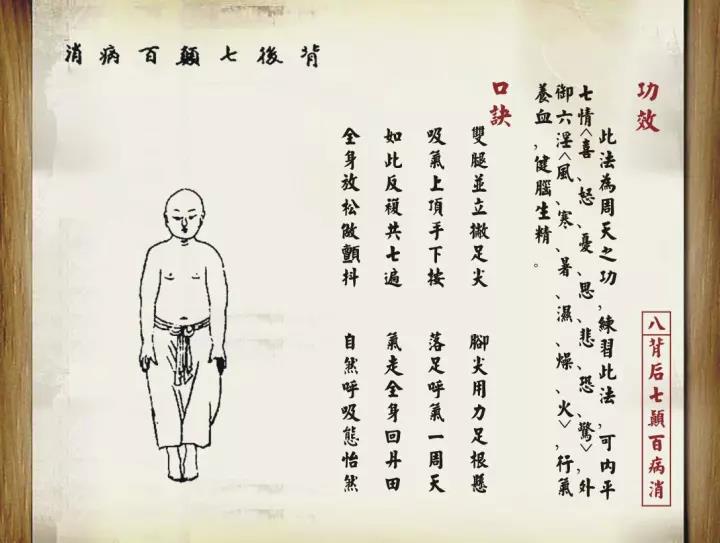 背後七顛百病消
八背后七顛百病消
功效
此法為周天之功,練習此法,可內平
七情<喜、怒、憂、思、悲、恐、驚>,外
御六淫<風、寒、暑、濕、燥、火>,行氣
養血,健腦生精。
口訣
雙腿並立撇足尖 腳尖用力足根懸
吸氣上頂手下按 落足呼氣一周天
如此反複共七遍 氣走全身回丹田
全身放松做顫抖 自然呼吸態怡然